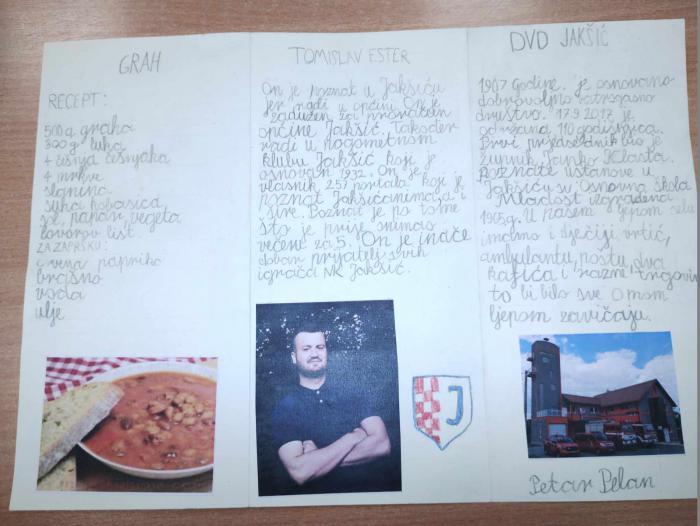 GRAH
RECEPT:
500 g graha
300 g luka
4 češnja češnjaka
4 mrkve
slanina
suha kobasica
sol, papar, vegeta
lovorov list
ZA ZAPRŠKU:
crvena paprika
brašno
voda
ulje
TOMISLAV ESTER
On je poznat u Jakšiću
jer radi u općini. On je
zadužen za proračun
općine Jakšić. Također
radi u nogometnom
klubu Jakšić koji je
osnovan 1932. On je
vlasnik 257 portala koji je
poznat Jakšićanimaa i
šire. Poznat je po tome
što je prije snimao
večeru za 5. On je inače
dobar prijatelj svih
igrača NK Jakšić.
J
DVD JAKŠIĆ
1907 godine. je osnovano
dobrovoljno vatrogasno
društvo. 17.9.2017. je
održana 110 godišnjica.
Prvi predsjednik bio je
župnik Janko Hlasta.
Poznate ustanove u
Jakšiću su: Osnovna škola
Mladost izgrađena
1965g. U našem ljepom selu
imamo i dječiji vrtić,
ambulantu, poštu, dva
kafića i razne trgovin
to bi bilo sve o mom
ljepom zavičaju.
Petar Pelan